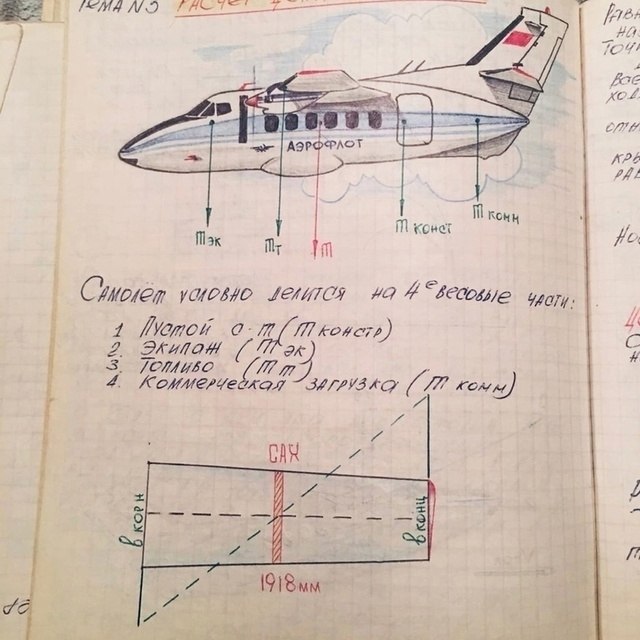 ТЕМА №3 РАСЧЁТ
АЭРОФЛОТ
m эк
m т
m
m конст
m комм
Самолёт условно делится на 4е весовые части:
1 Пустой с-т (m констр)
2. Экипаж (m эк)
3. Топливо (m т)
4. Коммерческая загрузка (m комм)
САХ
в корн
в конц
1918 мм